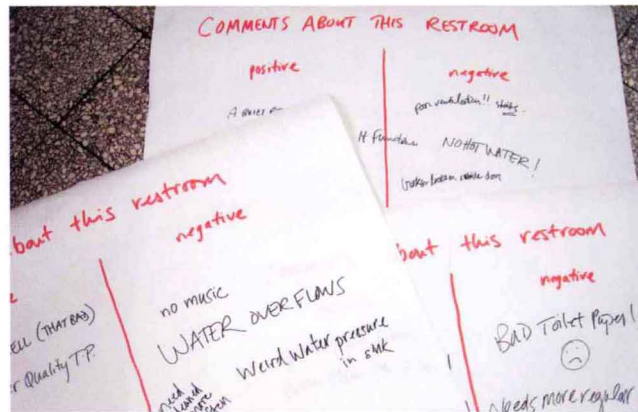 COMMENTS ABOUT THIS RESTROOM
positive
negative
poor ventilation!! stinks.
It Functions
NO HOT WATER!
broken
about this restroom
negative
ELL (THAT BAD)
Quality T.P.
no music
WATER OVERFLOWS
Weird water pressure
in sink
need
more
about this restroom
negative
BAD Toilet Paper!
Needs more regular